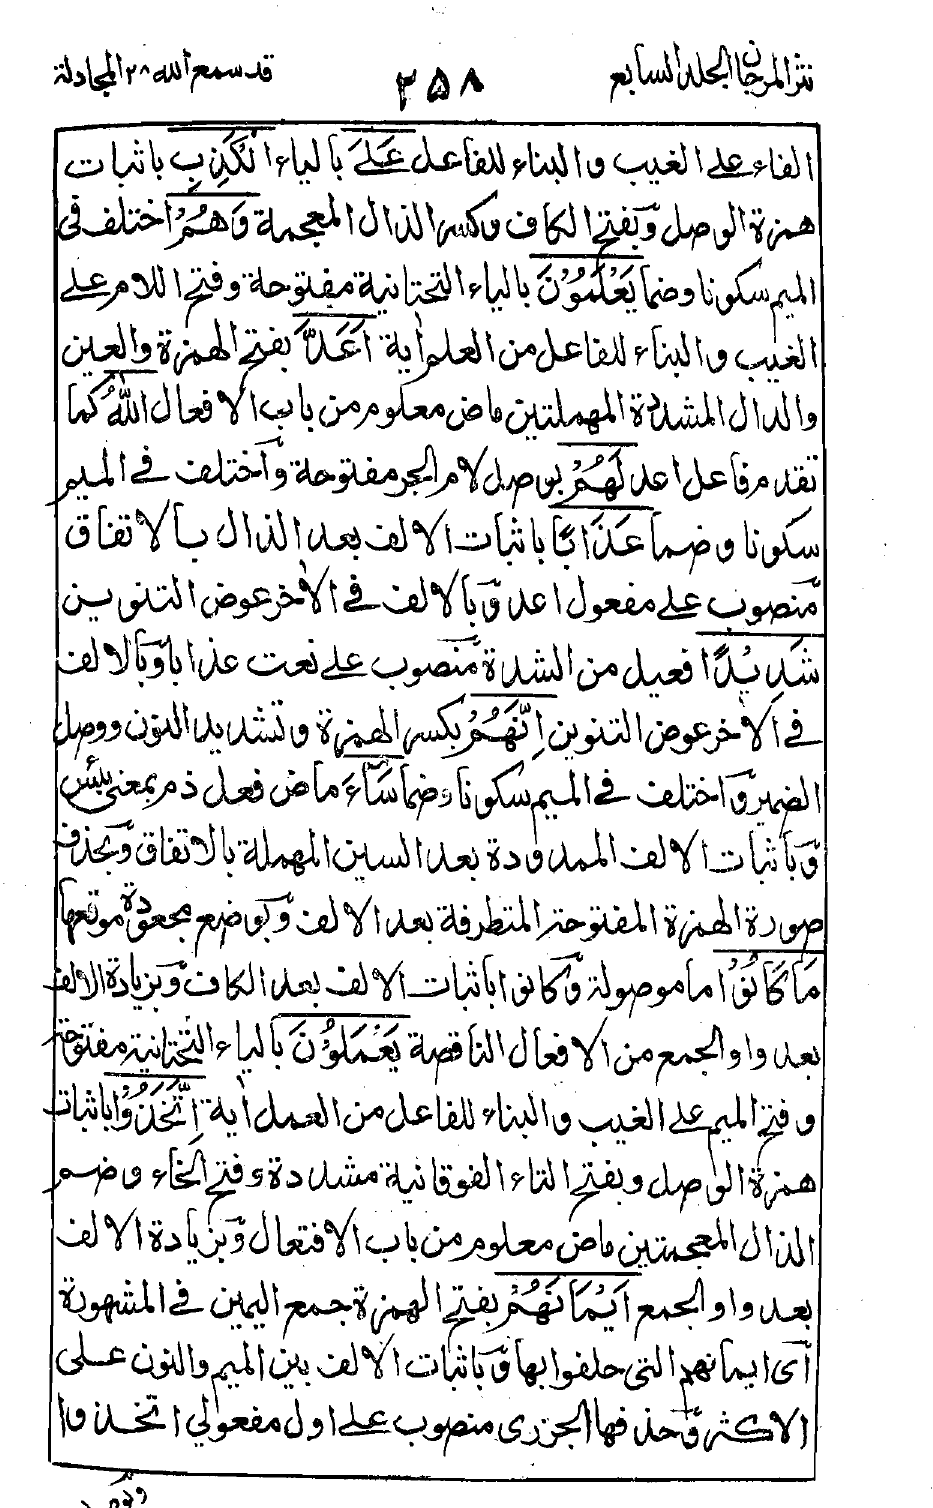 نثر المرجان الجلد السابع ٣٥٨ قد سمع الله ٢٨ المجادلة
الفاء على الغيب والبناء للفاعل عَلَى بالياء الْكَذِبِ باثبات
همزة الوصل وبفتح الكاف وكسر الذال المعجمة وَهُمْ اختلف في
الميم سكونا وضما يَعْلَمُوْنَ بالياء التحتانية مفتوحة وفتح اللام على
الغيب والبناء للفاعل من العلم اية اَعَدَّ بفتح الهمزة والعين
والدال المشددة المهملتين ماض معلوم من باب الافعال اللّٰهُ كما
تقدم فاعل اعد لَهُمْ بوصل لام الجر مفتوحة واختلف في الميم
سكونا وضما عَذَابًا باثبات الالف بعد الذال بالاتفاق
منصوب على مفعول اعد وبالالف في الاخر عوض التنوين
شَدِيْدًا فعيل من الشدة منصوب على نعت عذابا وبالالف
في الاخر عوض التنوين اِنَّهُمْ بكسر الهمزة وتشديد النون ووصل
الضمير واختلف في الميم سكونا وضما سَآءَ ماض فعل ذم بمعنى بئس
وباثبات الالف الممدودة بعد السين المهملة بالاتفاق وبحذف
صورة الهمزة المفتوحة المتطرفة بعد الالف وبوضع مجعودة موقعها
مَا كَانُوْا ما موصولة وكانوا باثبات الالف بعد الكاف وبزيادة الالف
بعد واو الجمع من الافعال الناقصة يَعْمَلُوْنَ بالياء التحتانية مفتوحة
وفتح الميم على الغيب والبناء للفاعل من العمل اية اِتَّخَذُوْا باثبات
همزة الوصل وبفتح التاء الفوقانية مشددة وفتح الخاء وضم
الذال المعجمتين ماض معلوم من باب الافتعال وبزيادة الالف
بعد واو الجمع اَيْمَانَهُمْ بفتح الهمزة جمع اليمين في المشهورة
اى ايمانهم التي حلفوا بها وباثبات الالف بين الميم والنون على
الاكثر وحذفها الجزرى منصوب على اول مفعولي اتخذوا